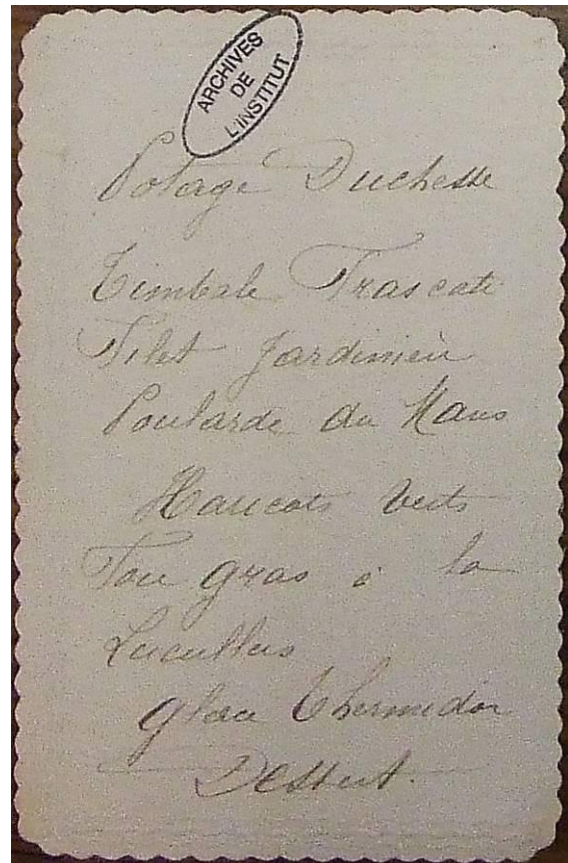 ARCHIVES
DE
L'INSTITUT
Potage Duchesse
Timbale Frascati
Filet Jardinière
Poularde du Mans
Haricots Verts
Foie gras à la
Lucullus
Glace Thermidor
Dessert.